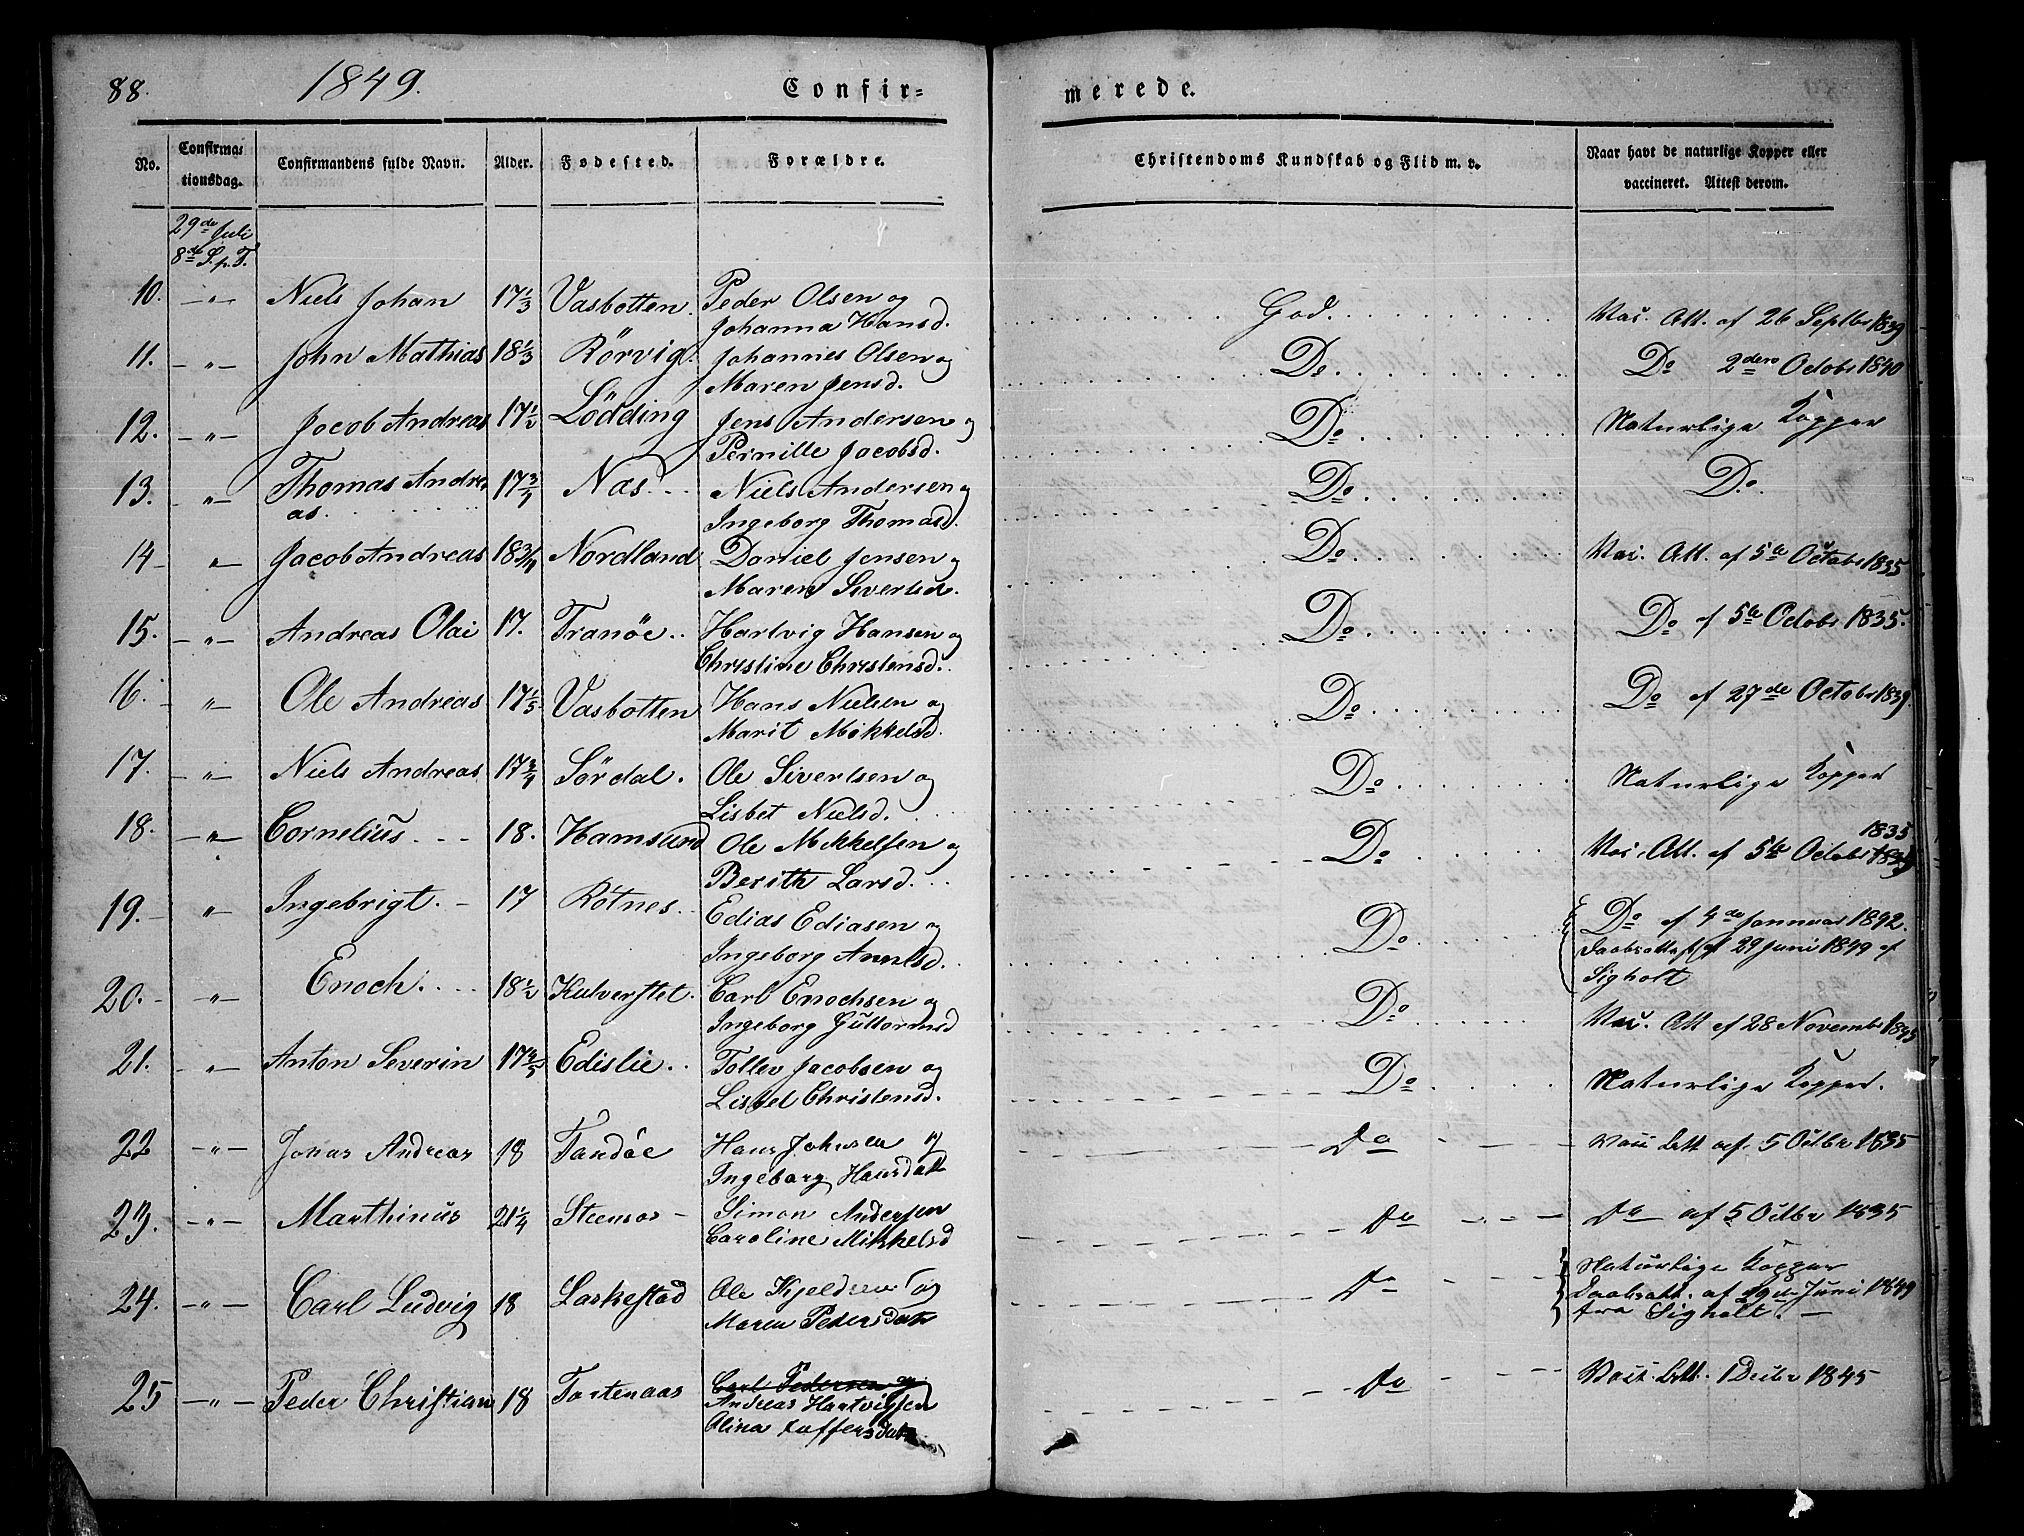 88. 1849. Confir= merede.
No. Confirma= tionsdag. Confirmandens fulde Navn. Alder. Fødested. Forældre. Christendoms Kundskab og Flid m. v. Naar havt de naturlige Kopper eller vaccineret. Attest derom.
29de Juli
8de S. p. T.
10. -„- Niels Johan 17 1/3 Vasbotten. Peder Olsen og God. Vac. Att. af 26 Septbr 1839
Johanna Hansd.
11. -„- John Mathias 18 1/3 Rörvig. Johannes Olsen og Do. Do 2den Octobr 1840
Maren Jensd.
12. -„- Jacob Andreas 17 1/2 Lödding Jens Andersen og Do Naturlige Kopper
Pernille Jacobsd.
13. „ Thomas Andre 17 3/4 Næs Niels Andersen og Do Do.
as. Ingeborg Thomasd.
14 „ Jacob Andreas 18 3/4 Nordland Daniel Jensen og Do Vac. Att. af 5te Octobr 1835
Maren Sivertsd.
15. -„- Andreas Olai 17. Tranöe Hartvig Hansen og Do Do af 5te Octobr 1835.
Christine Christensd.
16. „ Ole Andreas 17 1/5 Vasbotten Hans Nielsen og Do Do af 27de Octobr 1839
Marit Mikkelsd.
17. -„- Niels Andreas 17 3/4 Sördal. Ole Sivertsen og Do Naturlige Kopper
Lisbet Nielsd.
18. -„- Cornelius 18. Hamsund Ole Mikkelsen og Do Vac. Att. af 5te Octobr 1839 1835
Berith Larsd.
19. „ Ingebrigt. 17 Rötnes Edias Ediasen og Do Do af 4de Januar 1842.
Ingeborg Daabsattest af 29 Juni 1849 af
Sigholt
20. „ Enoch. 18 1/2 Kulverstet. Carl Enochsen og Do Vac. Att af 28 Novembr
Ingeborg Guttormsd
21. -„- Anton Severin 17 Edislie Tollev Jacobsen og Do Naturlige Kopper.
Lisbet Christensd.
22 -„- Jonas Andreas 18 Tandöe Hans Johnsen og Do Vacc Att af 5 Octbr 1835
Ingeborg Hansdatr
23. -„- Marthinus 21 1/4 Steensos Simon Andersen Do Do af 5 Octbr 1835
Caroline Mikkelsd
24. -„- Carl Ludvig 18 Laskestad Ole Kjeldsen og Do Naturlige Kopper
Maren Pedersdatr Daabsatt. af 29de Juni 1849
fra Sigholt.
25 -„- Peder Christian 18 Tortenaas Carl Pedersen og Do Vacc. Att. 1 Decbr 1845
Andreas Hartvigsen
Olina